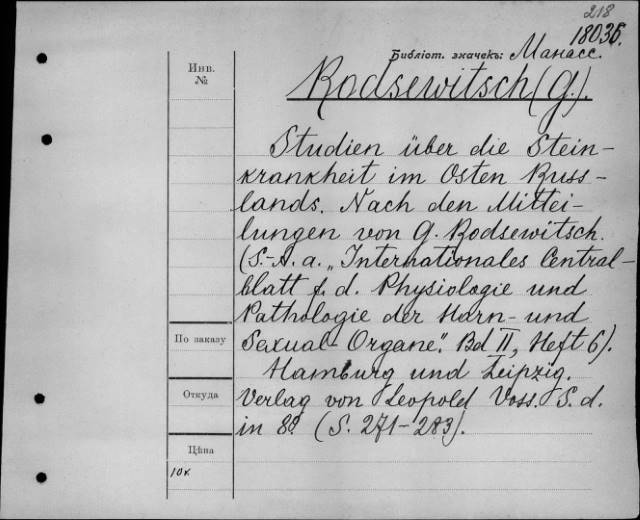 218
18035.
Библіот. значекъ: Манасс.
Инв.
№
Rodsewitsch (G.).
Studien über die Stein-
krankheit im Osten Russ-
lands. Nach den Mittei-
lungen von G. Rodsewitsch.
(S.-A. a. „Internationales Central-
blatt f. d. Physiologie und
Pathologie der Harn- und
Sexual-Organe". Bd II, Heft 6).
Hamburg und Leipzig.
Verlag von Leopold Voss. S. d.
in 8º. (S. 271-283).
По заказу
Откуда
Цѣна
10к